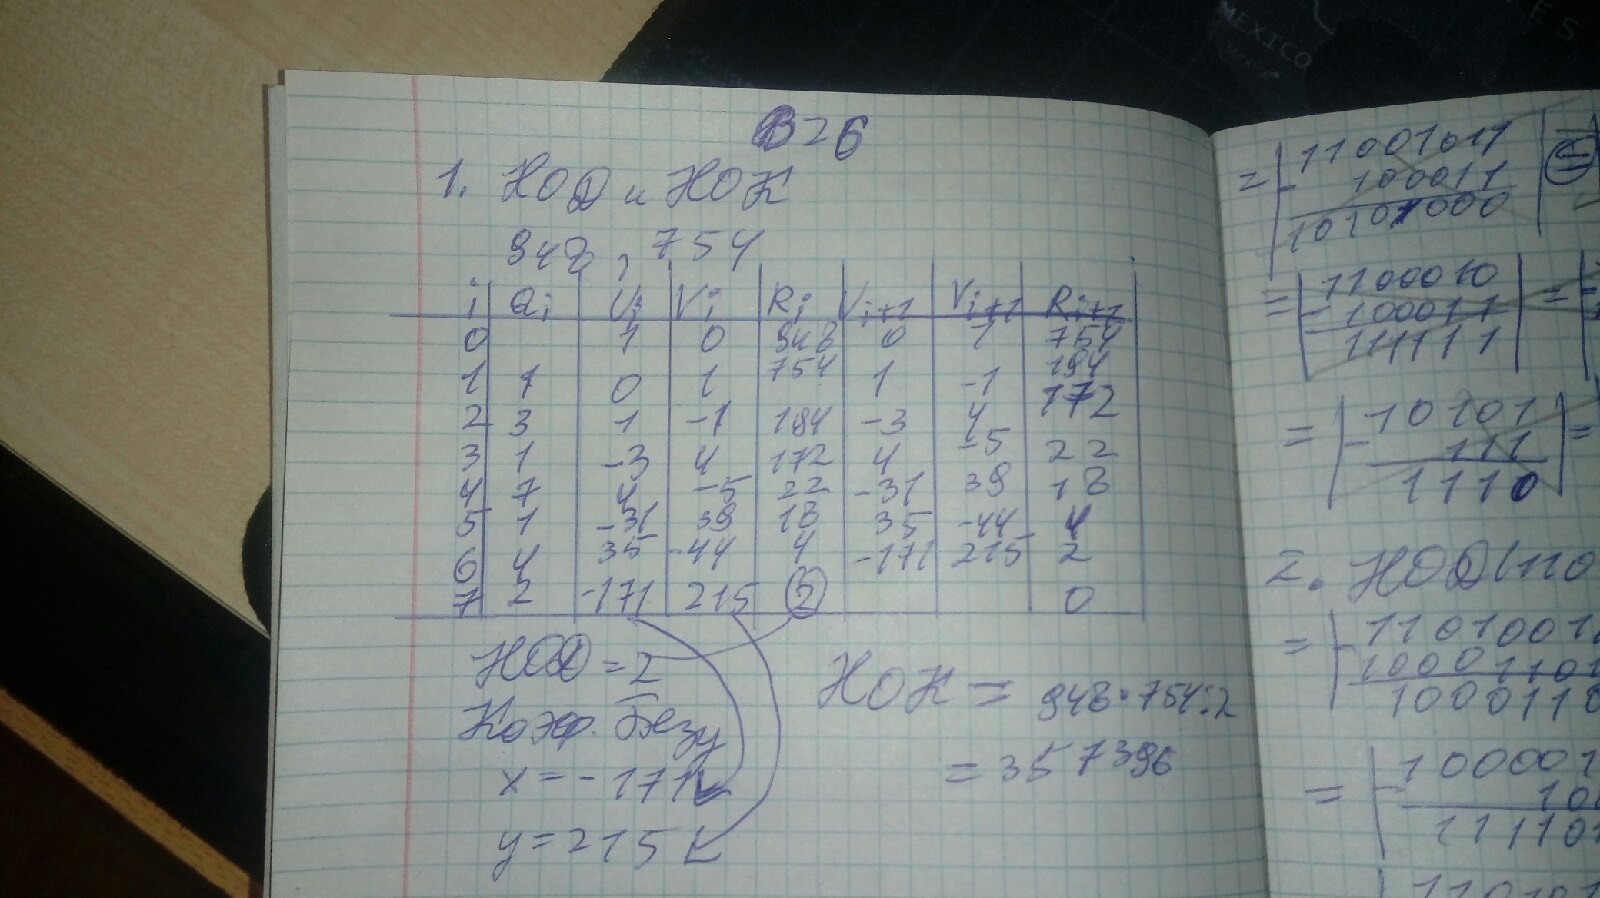 В26
1. НОД и НОК
948, 754
i ai Ui Vi Ri Ui+1 Vi+1 Ri+1
0 1 0 948 0 1 754
1 1 0 1 754 1 -1 194
2 3 1 -1 194 -3 4 172
3 1 -3 4 172 4 -5 22
4 7 4 -5 22 -31 39 18
5 1 -31 39 18 35 -44 4
6 4 35 -44 4 -171 215 2
7 2 -171 215 2 0
НОД = 2
Коэф. Безу
x = -171
y = 215
НОК = 948·754:2
= 357396
= 11001011
- 100011
10101000
= 1100010
- 100011
111111 =
= - 10101
111
1110 =
2. НОД(110
= - 1101001
10001101
1000110
= - 100001
10
111101
MEXICO